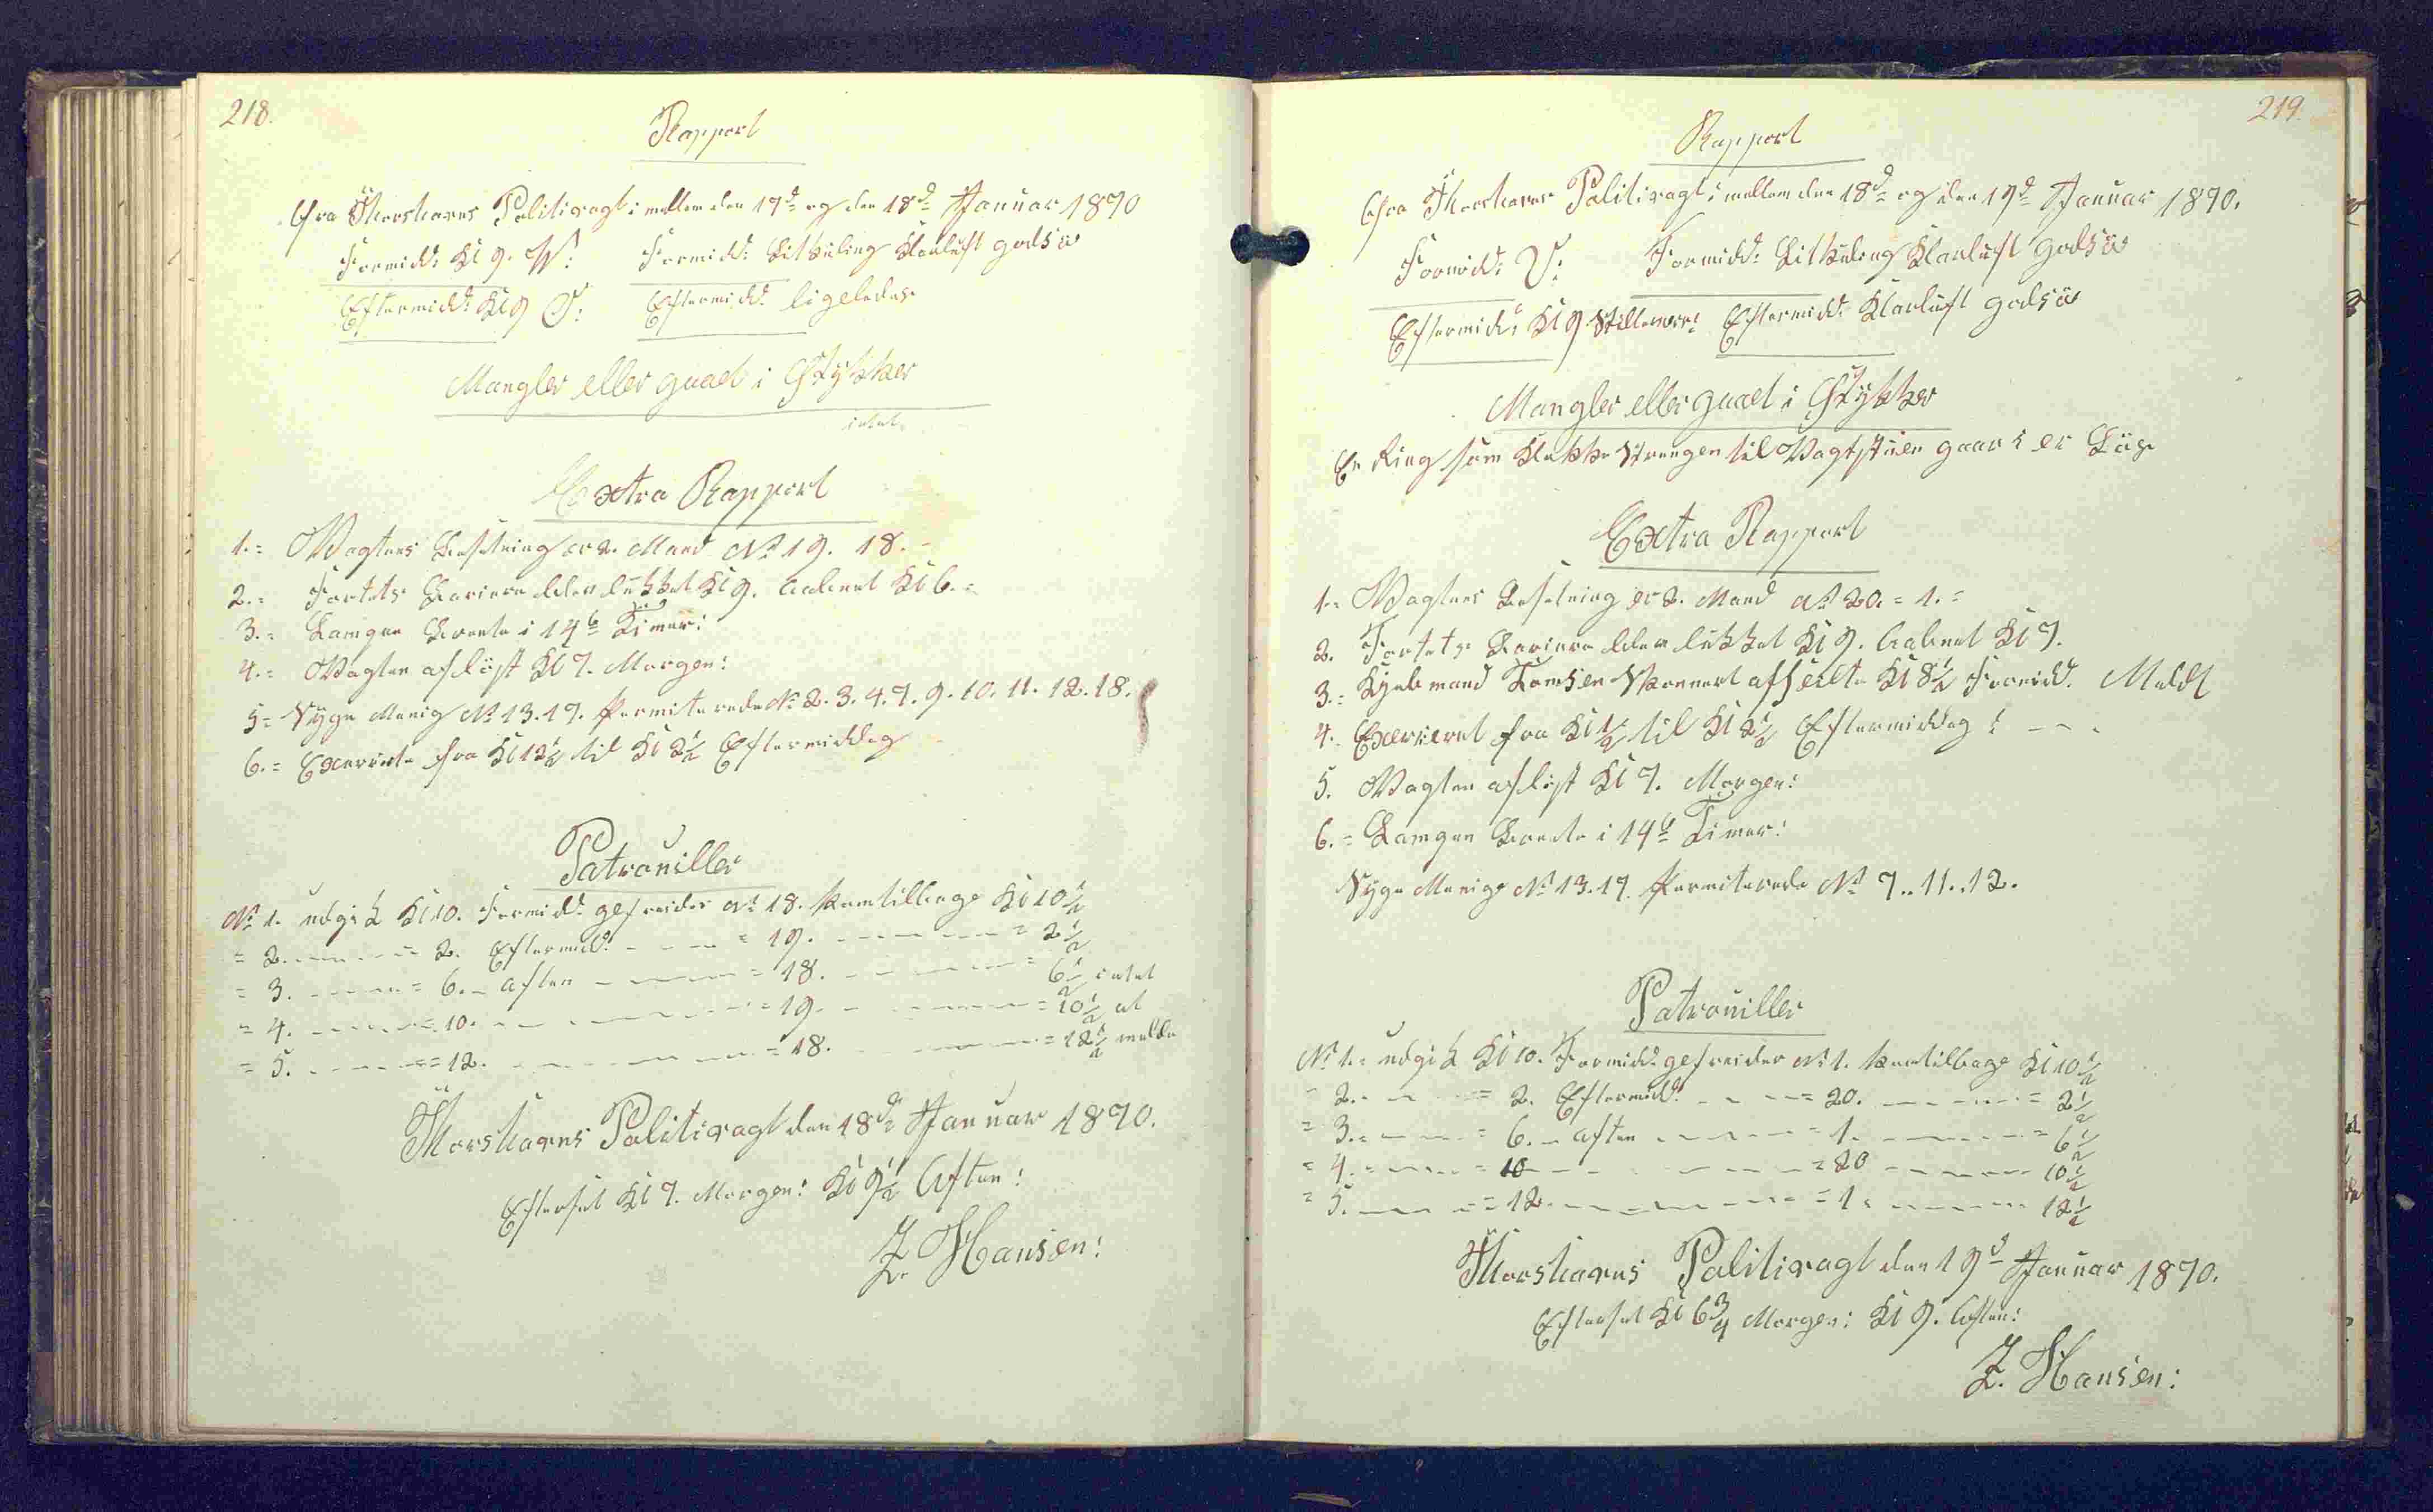 218.
Rapport
fra Thorshavns Politivagt i mellem den 17d= og den 18d= Januar 1870
Formidd: Kl 9. W: Formidd: Litkuling Klarluft godsö
Eftermidd: Kl 9 O: Eftermidd: ligeledes
Mangler eller gaaet i Stykker
intet
Extra Rapport
1.= Vagtens Besetning er 2. Mand No 19. 18.-
2.= Fortets Barieredder lukket Kl 9. aabnet Kl 6.=
3.= Lampen Brente i 14 Timer:
4.= Vagten aflöst Kl 7. Morgen:
5= Syge Menig No 13. 17. Permiterede No 2. 3. 4. 7. 9. 10. 11. 12. 18.
6.= Exercerte fra Kl 12½ til Kl 2½ Eftermiddag
Patrouiller
No 1. udgik Kl 10. Formidd: gefreider No 18. kom tilbage Kl 10½
= 2. - - - = 2. Eftermidd: - - - = 19. - - - = 2½
= 3. - - - = 6. - aften - - - = 18. - - - = 6½ intet
= 4. - - - = 10. - - - = 19. - - - = 10½ at
= 5. - - - = 12. - - - = 18. - - - = 12½ melde
Thorshavns Politivagt den 18d= Januar 1870.
Efterset Kl 7. Morgen: Kl 9½ Aften:
Z. Hansen:
219.
Rapport
fra Thorshavns Politivagt i mellem den 18d= og den 19d= Januar 1870.
Formidd: V: Formidd: Litkuling Klarluft godsö
Eftermidd: Kl 9. Stillever: Eftermidd: Klarluft godsö
Mangler eller gaaet i Stykker
En Ring som Klokke Strengen til Vagtstuen gaar i er Lös
Extra Rapport
1.= Vagtens Besetning er 2. Mand No 20. = 1.=
2. Fortets Barieredder lukket Kl 9. aabnet Kl 7.
3.= Kjøbmand Tomsen Skonnert afseilte Kl 8½ Formidd. Meldt
4. Exerceret fra Kl ½ til Kl 2½ Eftermiddag : - - -
5. Vagten aflöst Kl 7. Morgen:
6.= Lampen Brente i 14 Timer:
Syge Menige No 13. 17. Permiterede No 7.. 11.. 12.
Patrouiller
No 1.= udgik Kl 10. Formidd: gefreider No 1. kom tilbage Kl 10½
= 2.- - - = 2. Eftermidd: - - - = 20. - - - = 2½
= 3.= - - - = 6. - aften - - - = 1. - - - = 6½
= 4.= - - - = 10 - - - = 20 - - - 10½
= 5. - - - = 12. - - - = 1. - - - 12½
Thorshavns Politivagt den 19d= Januar 1870.
Efterset Kl 6¾ Morgen: Kl 9. Aften:
Z. Hansen: